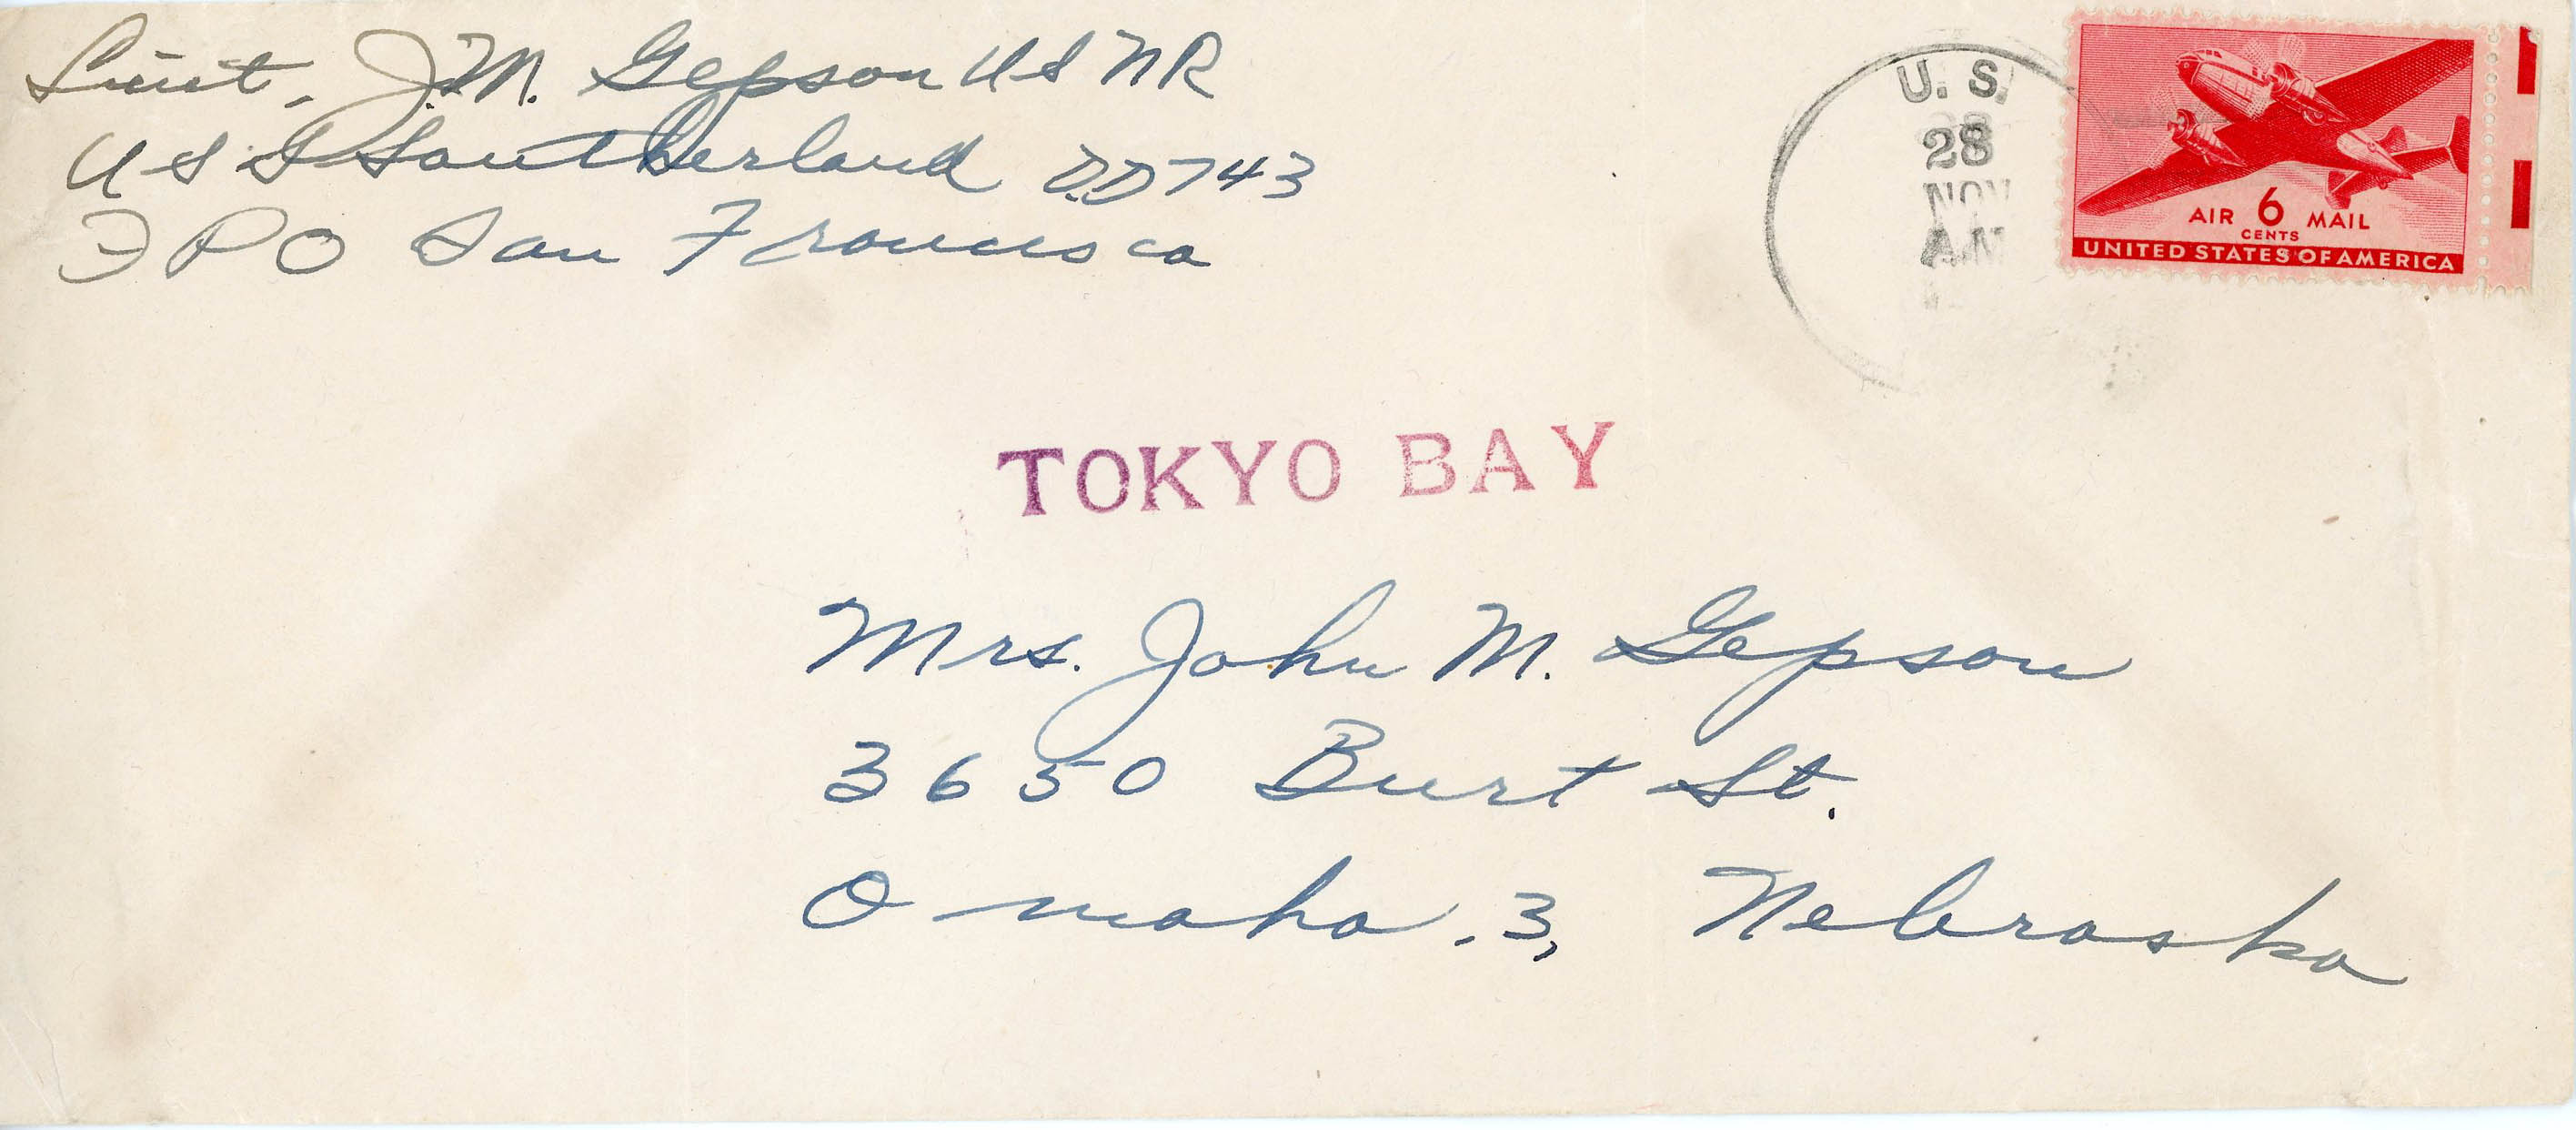 Lieut, J.M. Gepson USNR
USS Southerland D.D743
FPO San Francisco
U. S.
28
NOV
AM
AIR 6 MAIL
CENTS
UNITED STATES OF AMERICA
TOKYO BAY
Mrs. John M. Gepson
3650 Burt St.
Omaha. 3, Nebraska